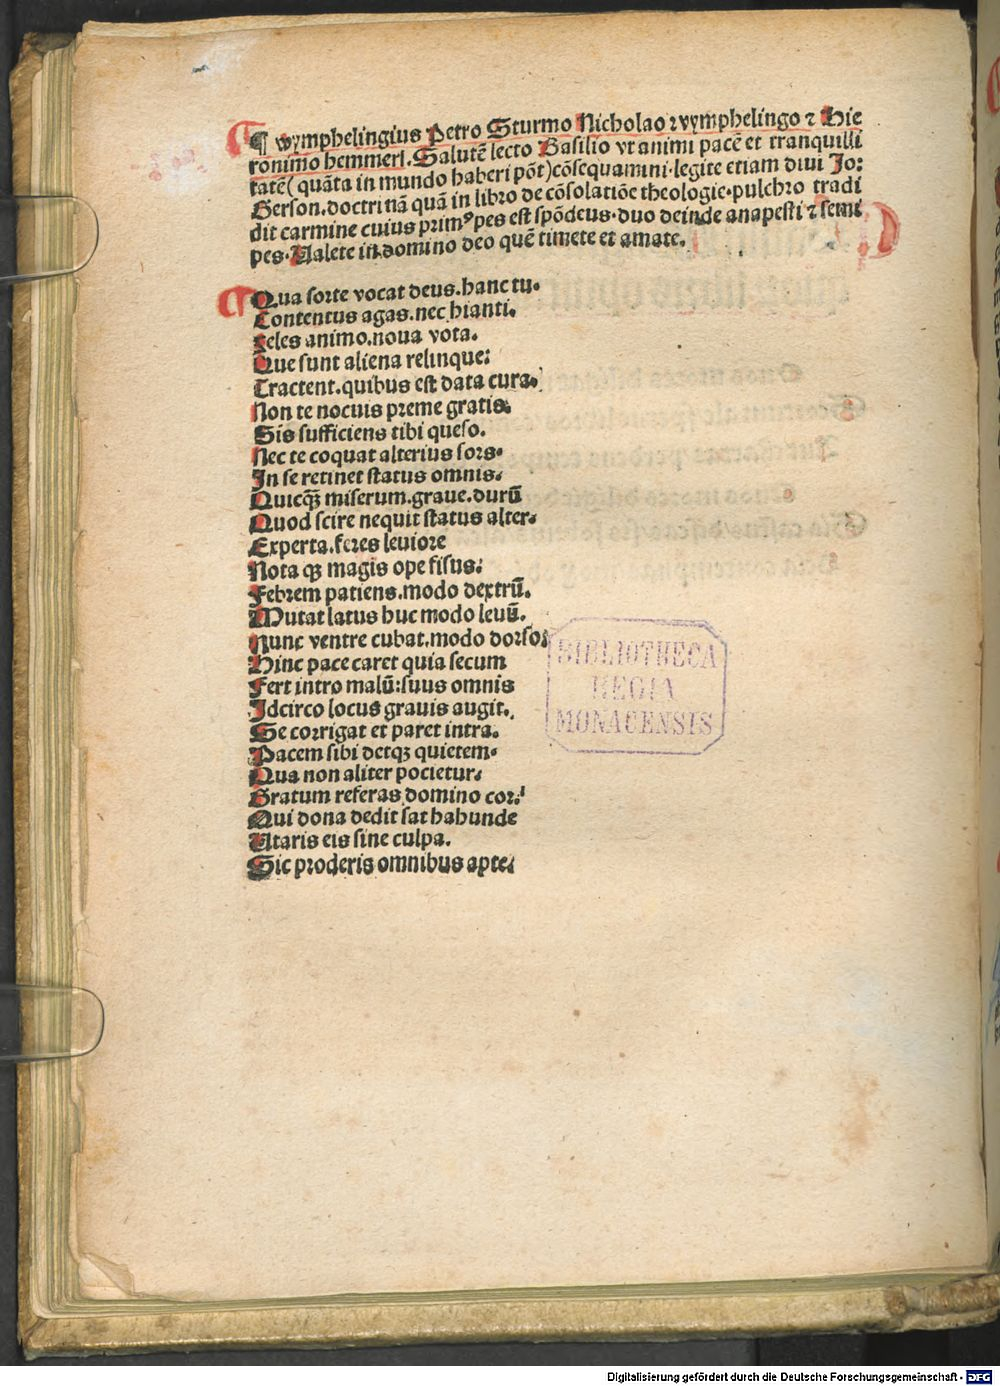 ¶ wymphelingius Petro Sturmo Nicholao ⁊ vvmphelingo ⁊ Hie
ronimo hemmerl. Salutē lecto Basilio vt animi pacē et tranquilli
tatē( quāta in mundo haberi pōt)cōsequamini·legite etiam diui Jo:
Gerson.doctrinā quā in libro de cōsolatiōe theologie·pulchro tradi
dit carmine cuius primꝰ pes est spōdeus·duo deinde anapesti ⁊ semi
pes·Ualete in domino deo quē timete et amate.
Qua sorte vocat deus.hanc tu.
Contentus agas.nec hianti.
Feles animo.noua vota.
Que sunt aliena relinque:
Tractent.quibus est data cura.
Non te nocuis preme gratis.
Sis sufficiens tibi queso.
Nec te coquat alterius sors.
In se retinet status omnis.
Quicqꝫ miserum.graue.durū
Quod scire nequit status alter.
Experta.feres leuiore
Nota qꝫ magis ope fisus:
Febrem patiens.modo dextrū.
Mutat latus huc modo leuū.
Nunc ventre cubat.modo dorso:
Hinc pace caret quia secum
Fert intro malū:suus omnis
Idcirco locus grauis augit.
Se corrigat et paret intra.
Pacem sibi detqꝫ quietem.
Qua non aliter pocietur.
Gratum referas domino cor.
Qui dona dedit sat habunde
Utaris eis sine culpa.
Sic proderis omnibus apte.
BIBLIOTHECA
REGIA
MONACENSIS
Digitalisierung gefördert durch die Deutsche Forschungsgemeinschaft - DFG